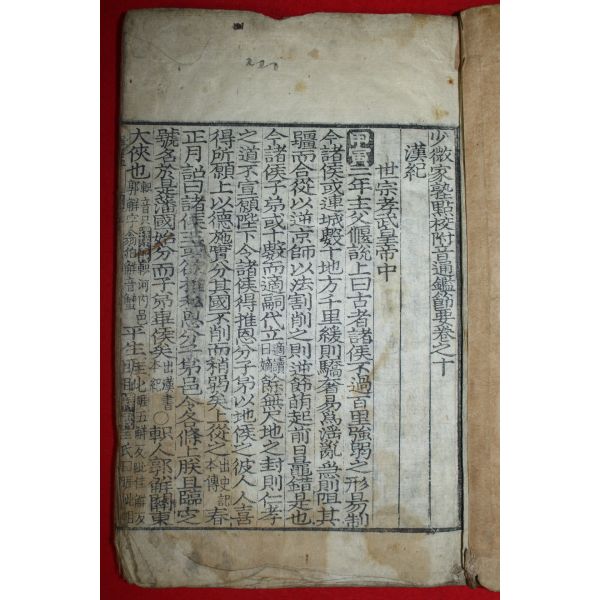 少微家塾點校附音通鑑節要卷之十
漢紀
世宗孝武皇帝中
甲寅二年主父偃說上曰古者諸侯不過百里強弱之形易制
今諸侯或連城數十地方千里緩則驕奢易爲淫亂急則阻其
彊而合從以逆京師以法割削之則逆節萌起前日鼂錯是也
今諸侯子弟或十數而適嗣代立適讀曰嫡餘無尺地之封則仁孝
之道不宣願陛下令諸侯得推恩分子弟以地侯之彼人人喜
得所願上以德施實分其國不削而稍弱矣上從之出史記本傳春
正月詔曰諸侯王或欲推私恩分子弟邑令各條上朕且臨定
號名於是藩國始分而子弟畢侯矣出漢書本紀○軹人郭解關東
大俠也軹音只河內邑郭解字翁伯解音蟹平生